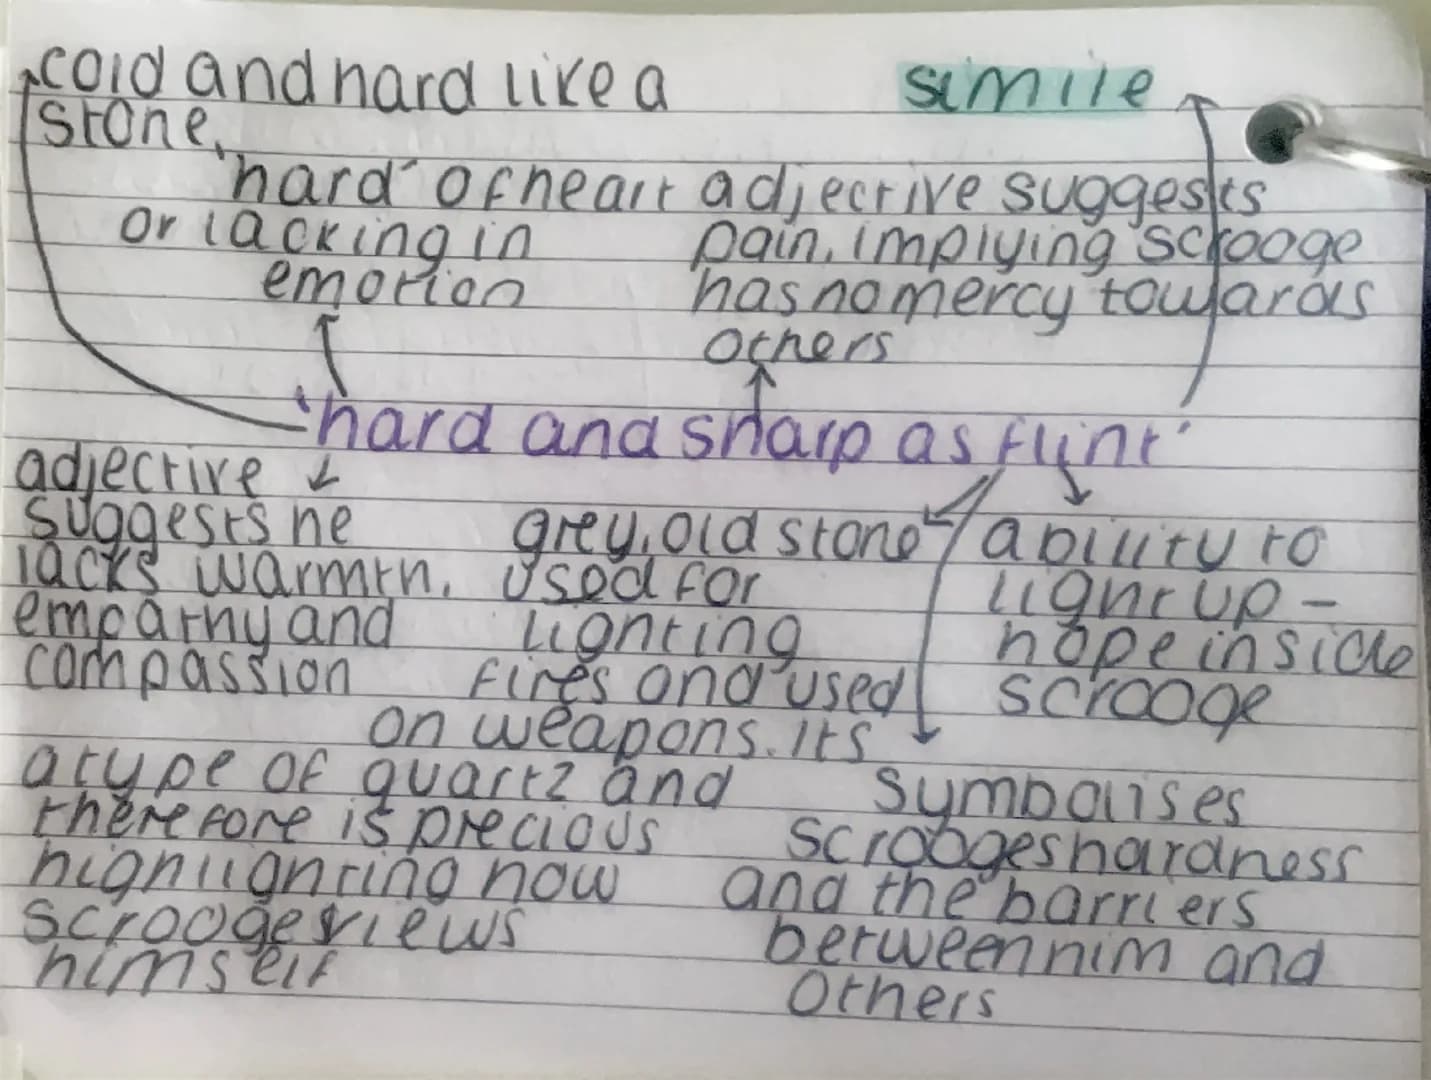 cold and hard like a
stone,
simile
'hard' of heart
or lacking in
emotion
adjective suggests
pain, implying scrooge
has no mercy towards
others
'hard and sharp as flint'
adjective
suggests he
lacks warmth,
empathy and
compassion
grey, old stone
used for
lighting
fires and used
on weapons. its
a type of quartz and
therefore is precious
highlighting how
scrooge views
himself
ability to
light up -
hope inside
scrooge
symbolises
scrooges hardness
and the barriers
between him and
others